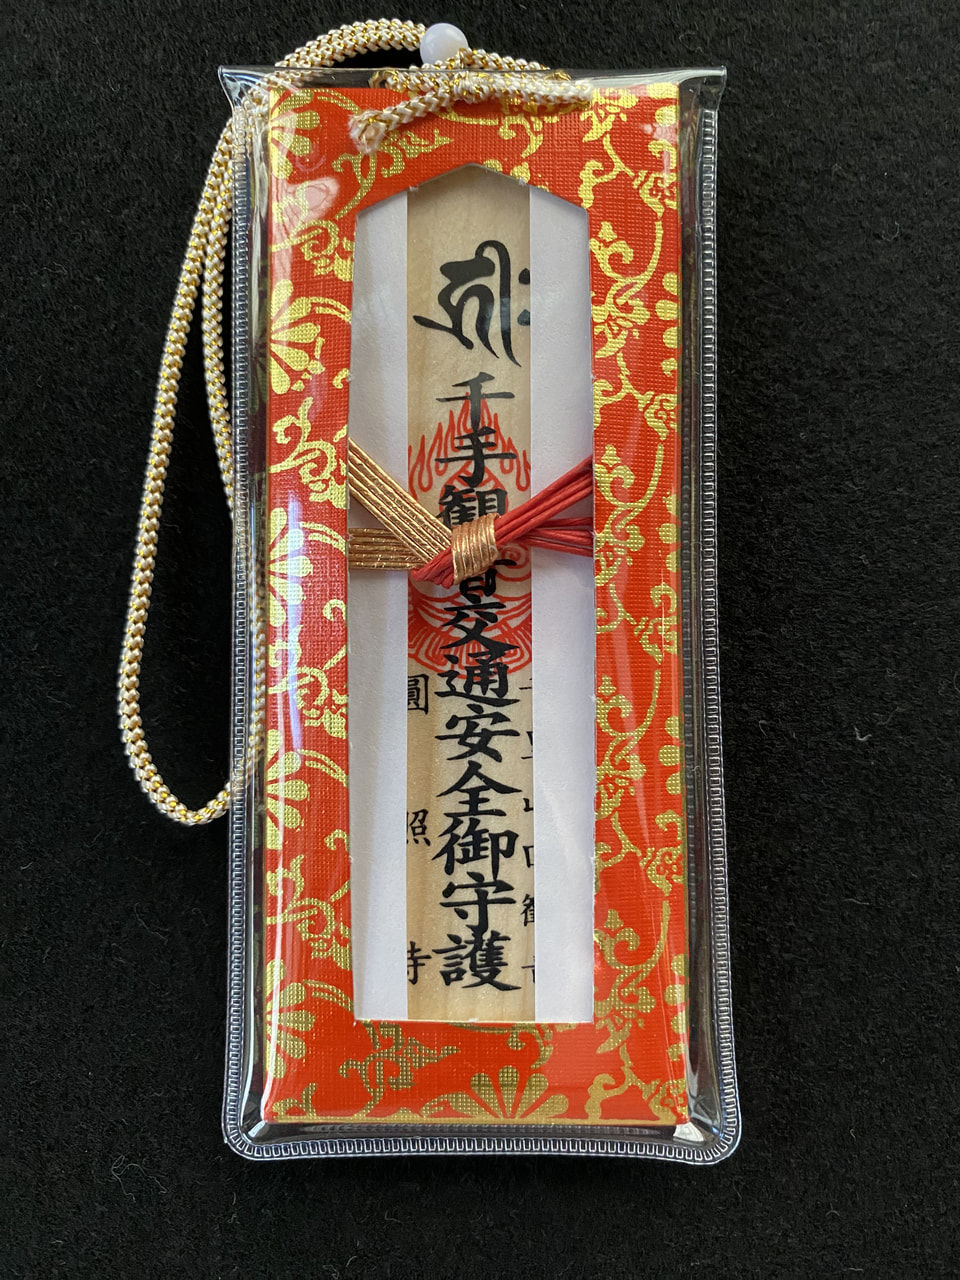 千手観音交通安全御守護
圓照寺